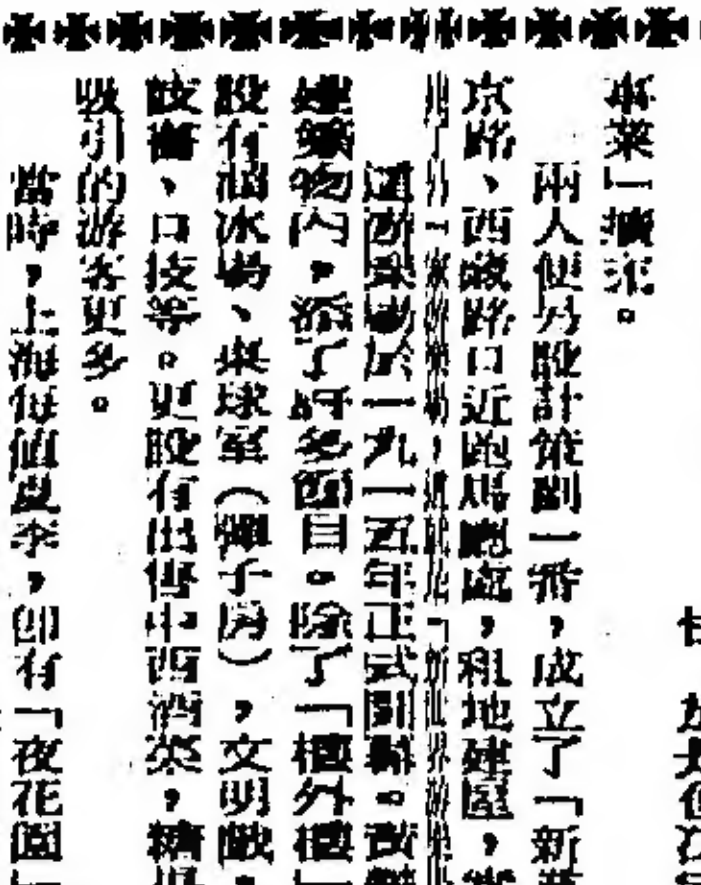 事業」擴充。
兩人便乃設計策劃一番,成立了「新
京路、西藏路口近跑馬廳處,租地建屋,
了另一家遊樂場,這就是「新世界游樂
這游樂場於一九一五年正式開幕。黃
建築物內,添了許多節目。除了「樓外樓」
設有溜冰場、桌球室(彈子房),文明戲,
技術、口技等。更設有出售中西酒菜,糖果
吸引的游客更多。
當時,上海每值夏季,卽有「夜花園」